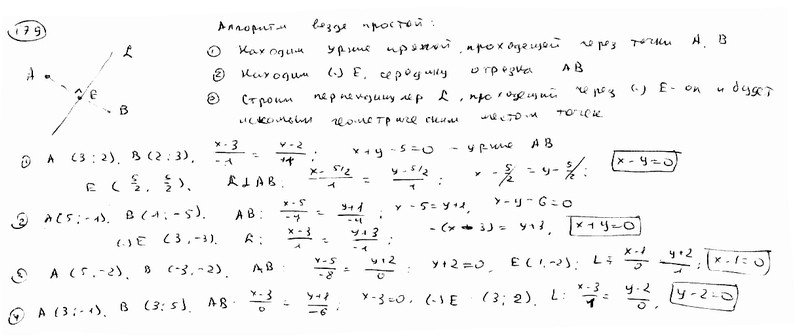 179
Алгоритм везде простой:
① Находим ур-ние прямой, проходящей через точки A, B
② Находим (·) E, середину отрезка AB
③ Строим перпендикуляр L, проходящий через (·) E - он и будет
искомым геометрическим местом точек
L
A
E
B
① A (3; 2), B (2; 3), (x-3)/(-1) = (y-2)/(+1); x+y-5=0 - ур-ние AB
E (5/2, 5/2), L⊥AB: (x-5/2)/1 = (y-5/2)/1; x - 5/2 = y - 5/2; x-y=0
② A(5; -1), B(1; -5), AB: (x-5)/(-4) = (y+1)/(-4); x-5=y+1, x-y-6=0
(·) E (3, -3). L: (x-3)/1 = (y+3)/(-1); -(x-3) = y+3, x+y=0
A (5, -2), B (-3, -2), AB: (x-5)/(-8) = (y+2)/0; y+2=0, E(1,-2); L = (x-1)/0 (y+2)/1; x-1=0
④ A (3; -1), B (3; 5), AB: (x-3)/0 = /(-6); x-3=0. (·) E (3; 2), L: (x-3)/1 = (y-2)/0, y-2=0